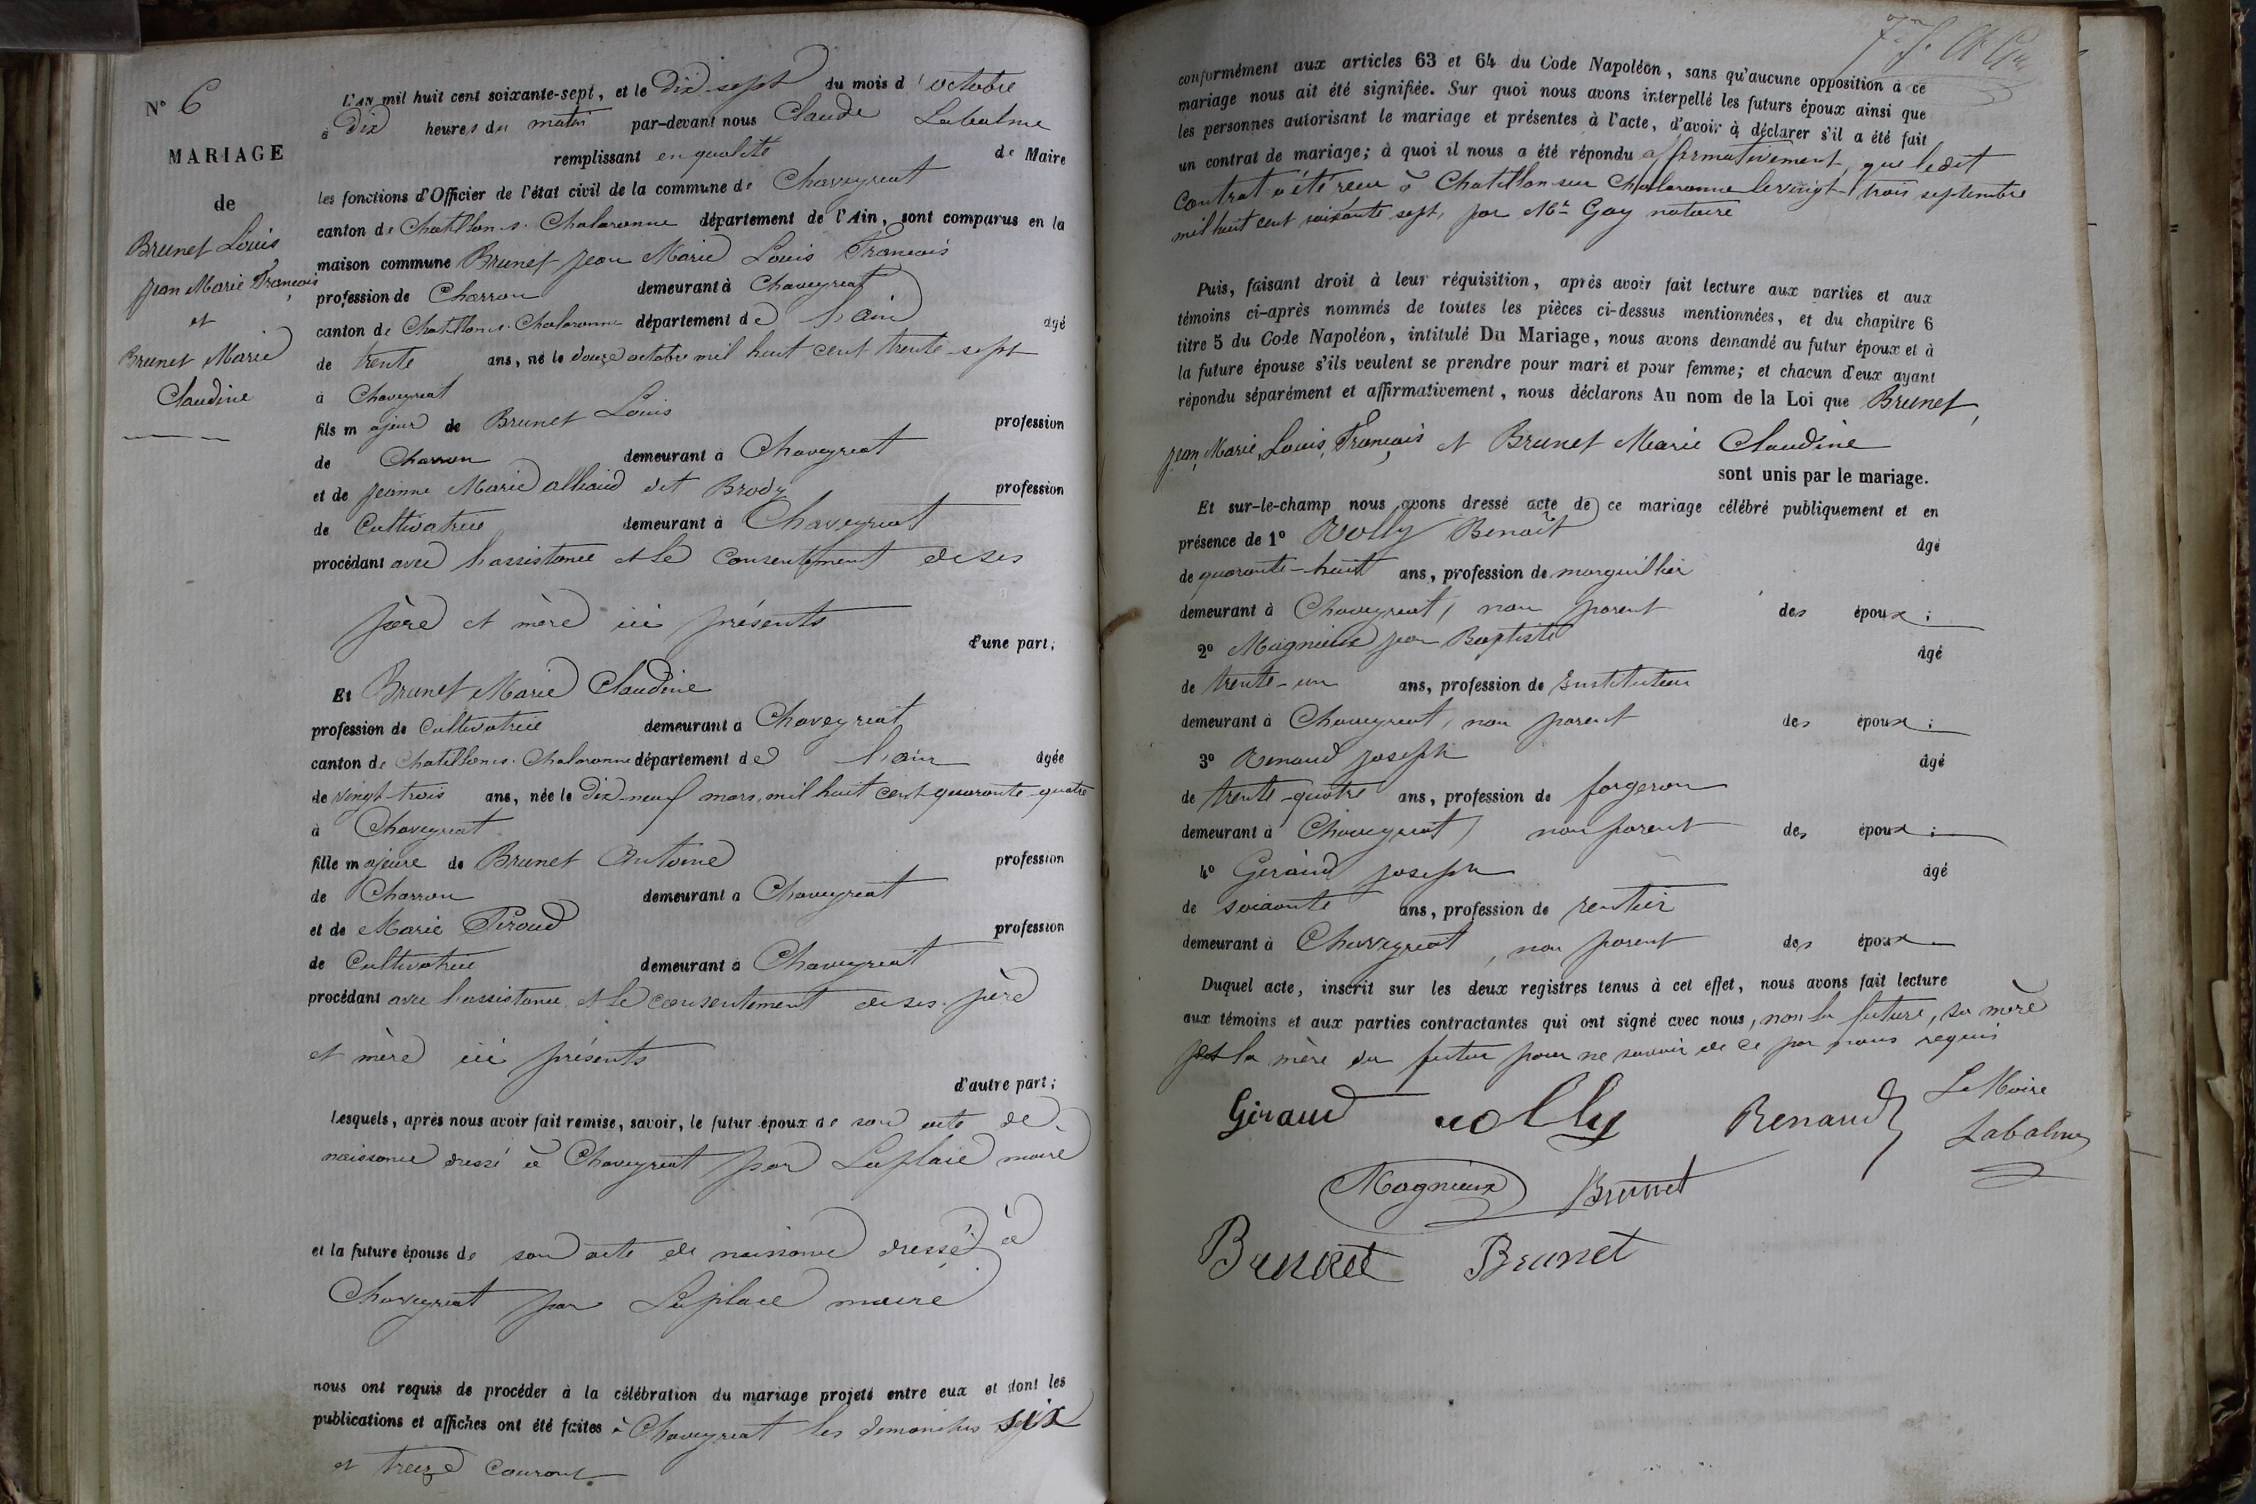 N° 6
MARIAGE
de
Brunet Louis
Jean Marie François
et
Brunet Marie
Claudine
L'AN mil huit cent soixante-sept, et le Dix-sept du mois d'octobre
à Dix heures du matin par-devant nous Claude Labalme
remplissant en qualité de Maire
les fonctions d'Officier de l'état civil de la commune de Chaveyriat
canton de Chatillon-s-Chalaronne département de l'Ain, sont comparus en la
maison commune Brunet Jean Marie Louis François
profession de Charron demeurant à Chaveyriat
canton de Chatillon-s-Chalaronne département de l'ain âgé
de trente ans, né le douze octobre mil huit cent trente-sept
à Chaveyriat
fils majeur de Brunet Louis profession
de Charron demeurant à Chaveyriat
et de Jeanne Marie alliaud dit Brody profession
de Cultivatrice demeurant à Chaveyriat
procédant avec l'assistance et le consentement de ses
père et mère ici présents
d'une part;
Et Brunet Marie Claudine
profession de Cultivatrice demeurant à Chaveyriat
canton de Chatillon-s-Chalaronne département de l'ain âgée
de vingt-trois ans, née le Dix-neuf mars, mil huit cent quarante-quatre
à Chaveyriat
fille majeure de Brunet Antoine profession
de Charron demeurant à Chaveyriat
et de Marie Piroud profession
de Cultivatrice demeurant à Chaveyriat
procédant avec l'assistance et le consentement de ses père
et mère ici présents
d'autre part;
Lesquels, après nous avoir fait remise, savoir, le futur époux de son acte de
naissance dressé à Chaveyriat par Laplace maire
et la future épouse de son acte de naissance dressé à
Chaveyriat par Laplace maire
nous ont requis de procéder à la célébration du mariage projeté entre eux et dont les
publications et affiches ont été faites à Chaveyriat les dimanches six
et treize courant
conformément aux articles 63 et 64 du Code Napoléon, sans qu'aucune opposition à ce
mariage nous ait été signifiée. Sur quoi nous avons interpellé les futurs époux ainsi que
les personnes autorisant le mariage et présentes à l'acte, d'avoir à déclarer s'il a été fait
un contrat de mariage; à quoi il nous a été répondu affirmativement, que ledit
Contrat a été reçu à Chatillon sur Chalaronne le vingt-trois septembre
mil huit cent soixante sept, par Me Gay notaire
Puis, faisant droit à leur réquisition, après avoir fait lecture aux parties et aux
témoins ci-après nommés de toutes les pièces ci-dessus mentionnées, et du chapitre 6
titre 5 du Code Napoléon, intitulé Du Mariage, nous avons demandé au futur époux et à
la future épouse s'ils veulent se prendre pour mari et pour femme; et chacun d'eux ayant
répondu séparément et affirmativement, nous déclarons Au nom de la Loi que Brunet,
Jean, Marie, Louis, François, et Brunet Marie Claudine
sont unis par le mariage.
Et sur-le-champ nous avons dressé acte de ce mariage célébré publiquement et en
présence de 1° Volly Benoît âgé
de quarante-huit ans, profession de marguillier
demeurant à Chaveyriat, non parent des époux;
2° Magnieux Jean Baptiste âgé
de trente-un ans, profession de Instituteur
demeurant à Chaveyriat, non parent des époux;
3° Renaud Joseph âgé
de trente-quatre ans, profession de forgeron
demeurant à Chaveyriat, non parent des époux;
4° Geraud Joseph âgé
de soixante ans, profession de rentier
demeurant à Chaveyriat, non parent des époux
Duquel acte, inscrit sur les deux registres tenus à cet effet, nous avons fait lecture
aux témoins et aux parties contractantes qui ont signé avec nous, non la future, sa mère
et la mère du futur pour ne savoir de ce par nous requis
Giraud volly Renaud Le Maire
Labalme
Magnieux Brunet
Brunet Brunet